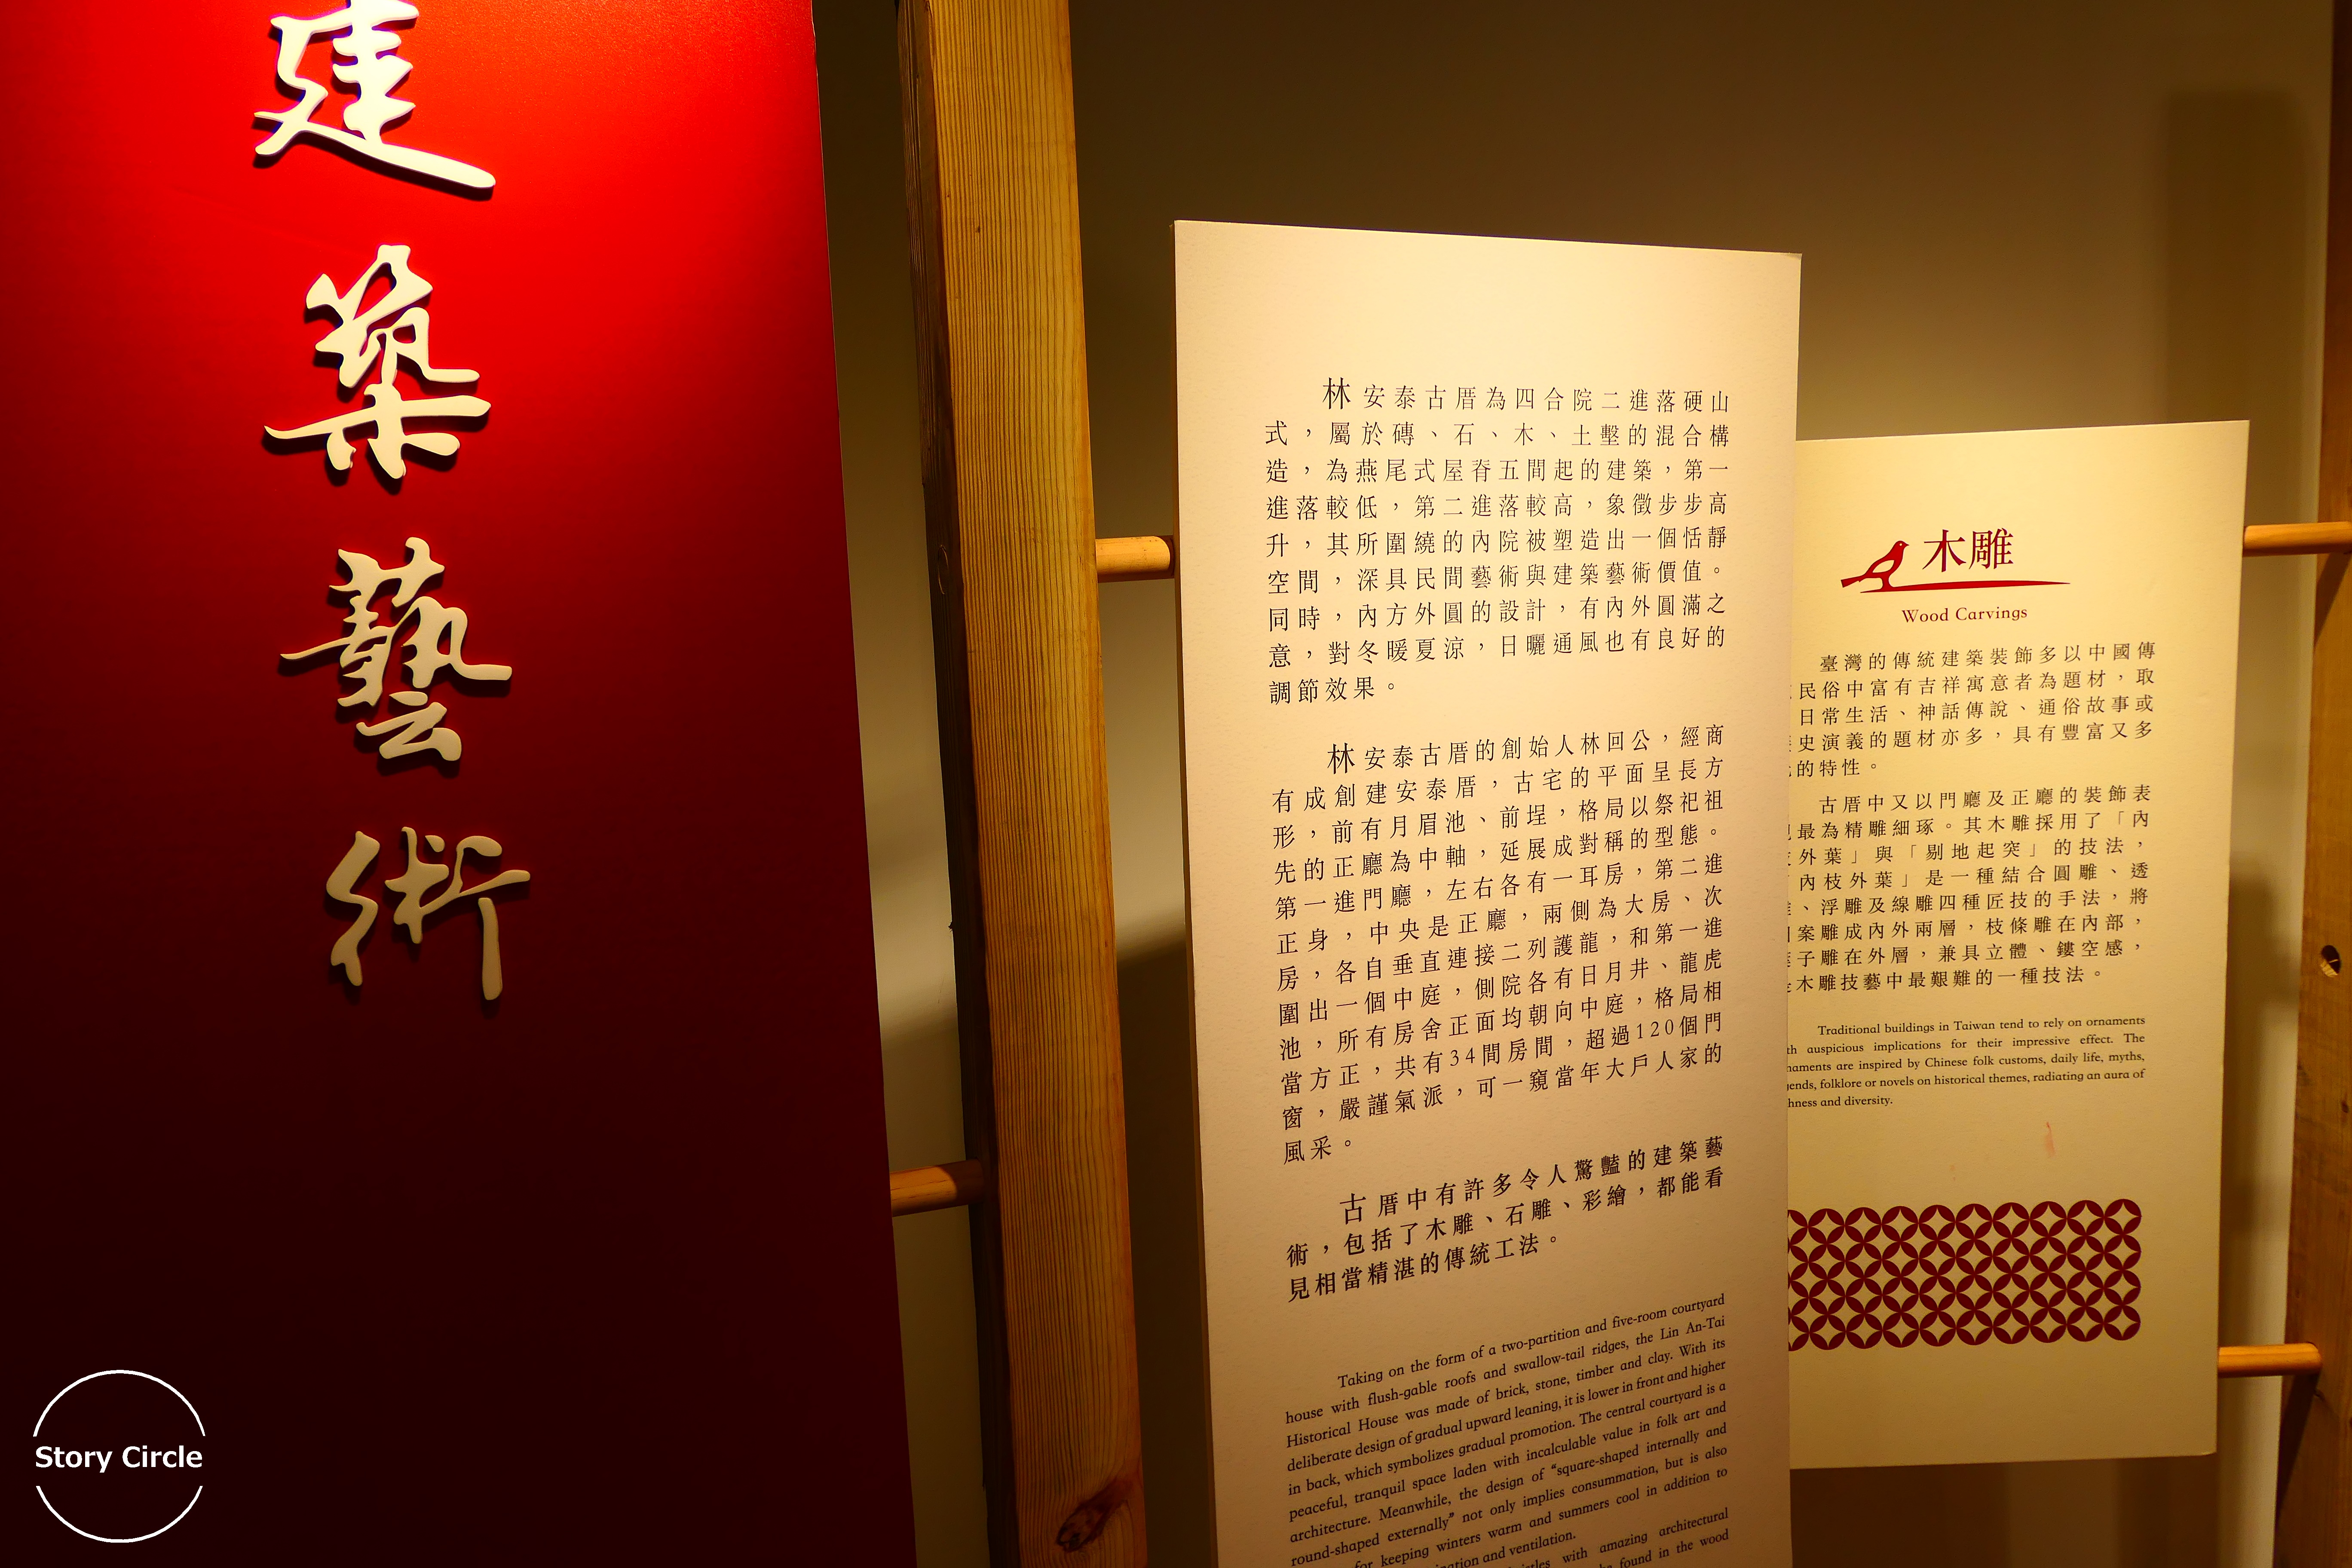 建
築
藝
術
林安泰古厝為四合院二進落硬山
式，屬於磚、石、木、土墼的混合構
造，為燕尾式屋脊五間起的建築，第一
進落較低，第二進落較高，象徵步步高
升，其所圍繞的內院被塑造出一個恬靜
空間，深具民間藝術與建築藝術價值。
同時，內方外圓的設計，有內外圓滿之
意，對冬暖夏涼，日曬通風也有良好的
調節效果。
林安泰古厝的創始人林回公，經商
有成創建安泰厝，古宅的平面呈長方
形，前有月眉池、前埕，格局以祭祀祖
先的正廳為中軸，延展成對稱的型態。
第一進門廳，左右各有一耳房，第二進
正身，中央是正廳，兩側為大房、次
房，各自垂直連接二列護龍，和第一進
圍出一個中庭，側院各有日月井、龍虎
池，所有房舍正面均朝向中庭，格局相
當方正，共有34間房間，超過120個門
窗，嚴謹氣派，可一窺當年大戶人家的
風采。
古厝中有許多令人驚豔的建築藝
術，包括了木雕、石雕、彩繪，都能看
見相當精湛的傳統工法。
Taking on the form of a two-partition and five-room courtyard
house with flush-gable roofs and swallow-tail ridges, the Lin An-Tai
Historical House was made of brick, stone, timber and clay. With its
deliberate design of gradual upward leaning, it is lower in front and higher
in back, which symbolizes gradual promotion. The central courtyard is a
peaceful, tranquil space laden with incalculable value in folk art and
architecture. Meanwhile, the design of "square-shaped internally and
round-shaped externally" not only implies consummation, but is also
for keeping winters warm and summers cool in addition to
and ventilation.
with amazing architectural
found in the wood
木雕
Wood Carvings
臺灣的傳統建築裝飾多以中國傳
民俗中富有吉祥寓意者為題材，取
日常生活、神話傳說、通俗故事或
史演義的題材亦多，具有豐富又多
的特性。
古厝中又以門廳及正廳的裝飾表
最為精雕細琢。其木雕採用了「內
外葉」與「剔地起突」的技法，
內枝外葉」是一種結合圓雕、透
、浮雕及線雕四種匠技的手法，將
案雕成內外兩層，枝條雕在內部，
子雕在外層，兼具立體、鏤空感，
木雕技藝中最艱難的一種技法。
Traditional buildings in Taiwan tend to rely on ornaments
auspicious implications for their impressive effect. The
are inspired by Chinese folk customs, daily life, myths,
folklore or novels on historical themes, radiating an aura of
and diversity.
Story Circle